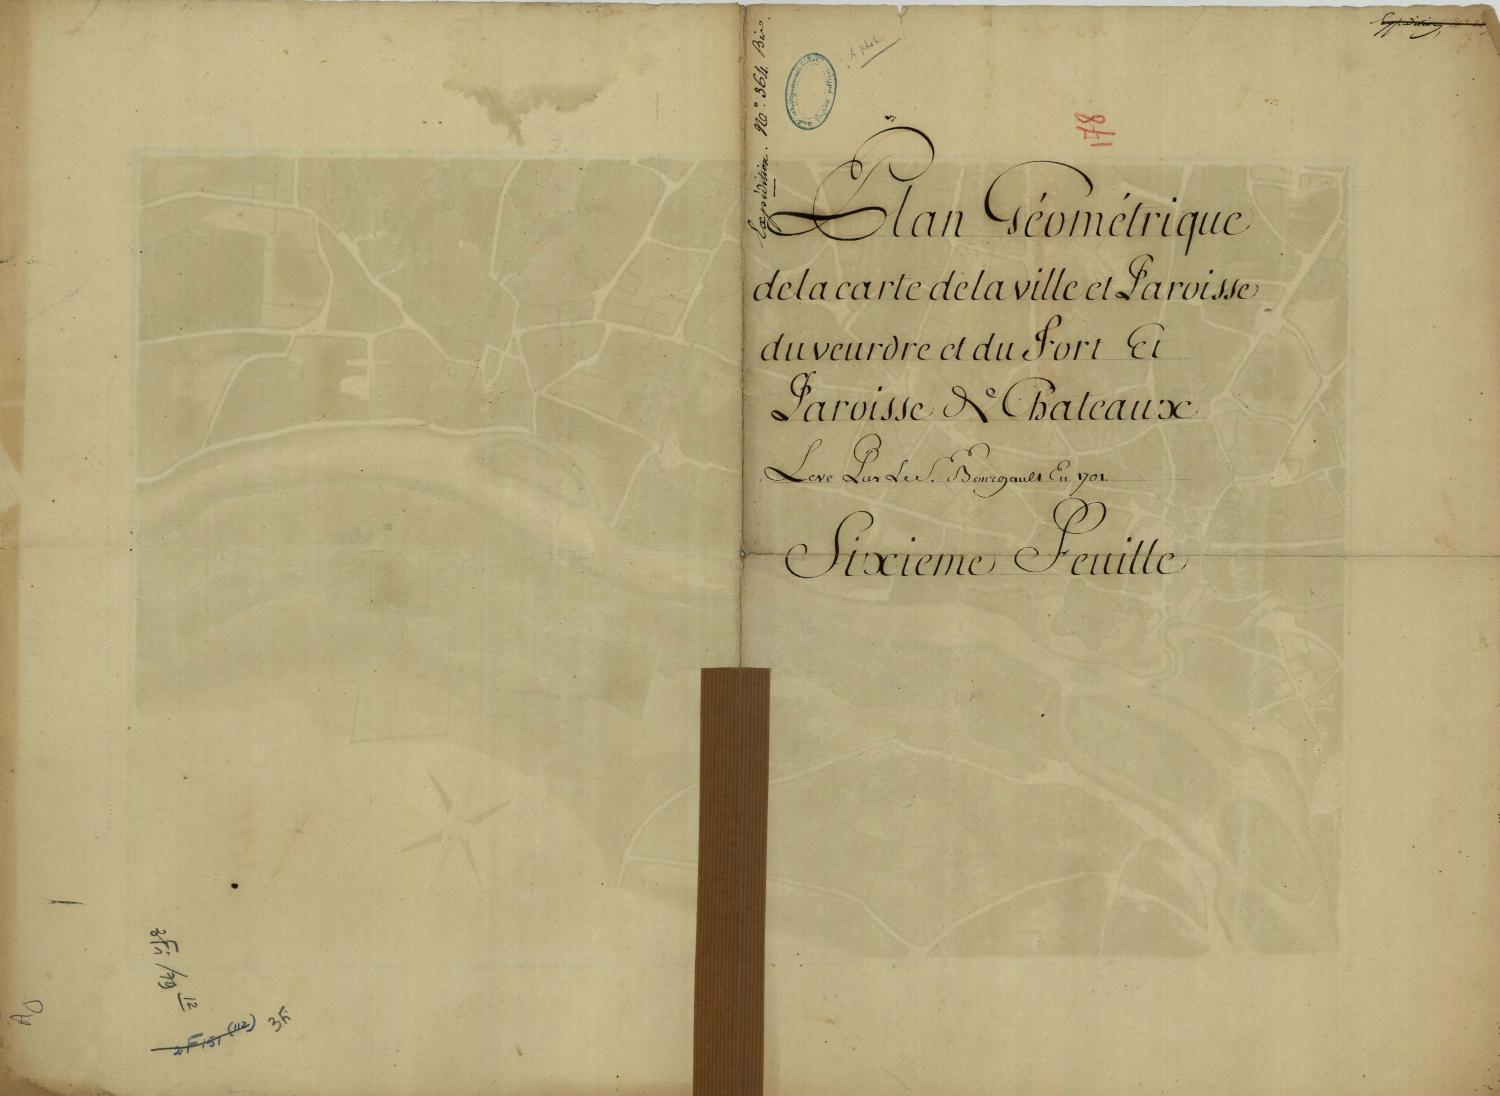 Expédition. N.º 364 Bis.
178
Plan Géométrique
de la carte de la ville et Paroisse
du veurdre et du Port Et
Paroisse De Chateaux
Levé Par Le S. Bourgault En 1701.
Sixieme Feuille
12
2F 151 (112)
3Fi
AD